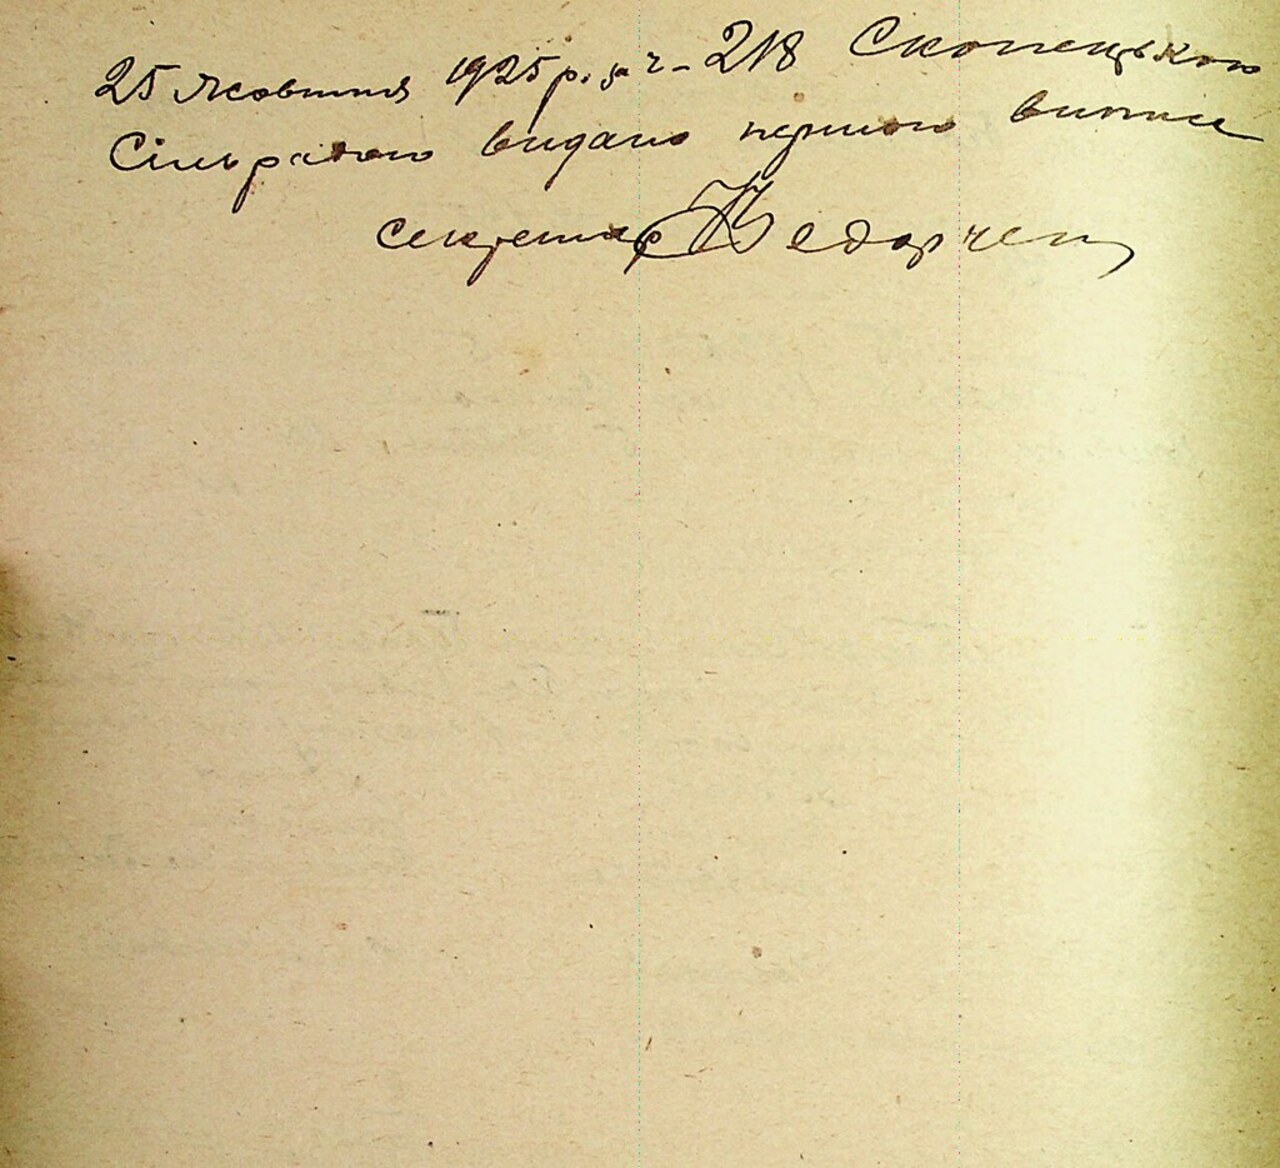 25 Жовтня 1925 р. за ч - 218 Скопецькою
Сільрадою видано першого випис
секретар Федорчен